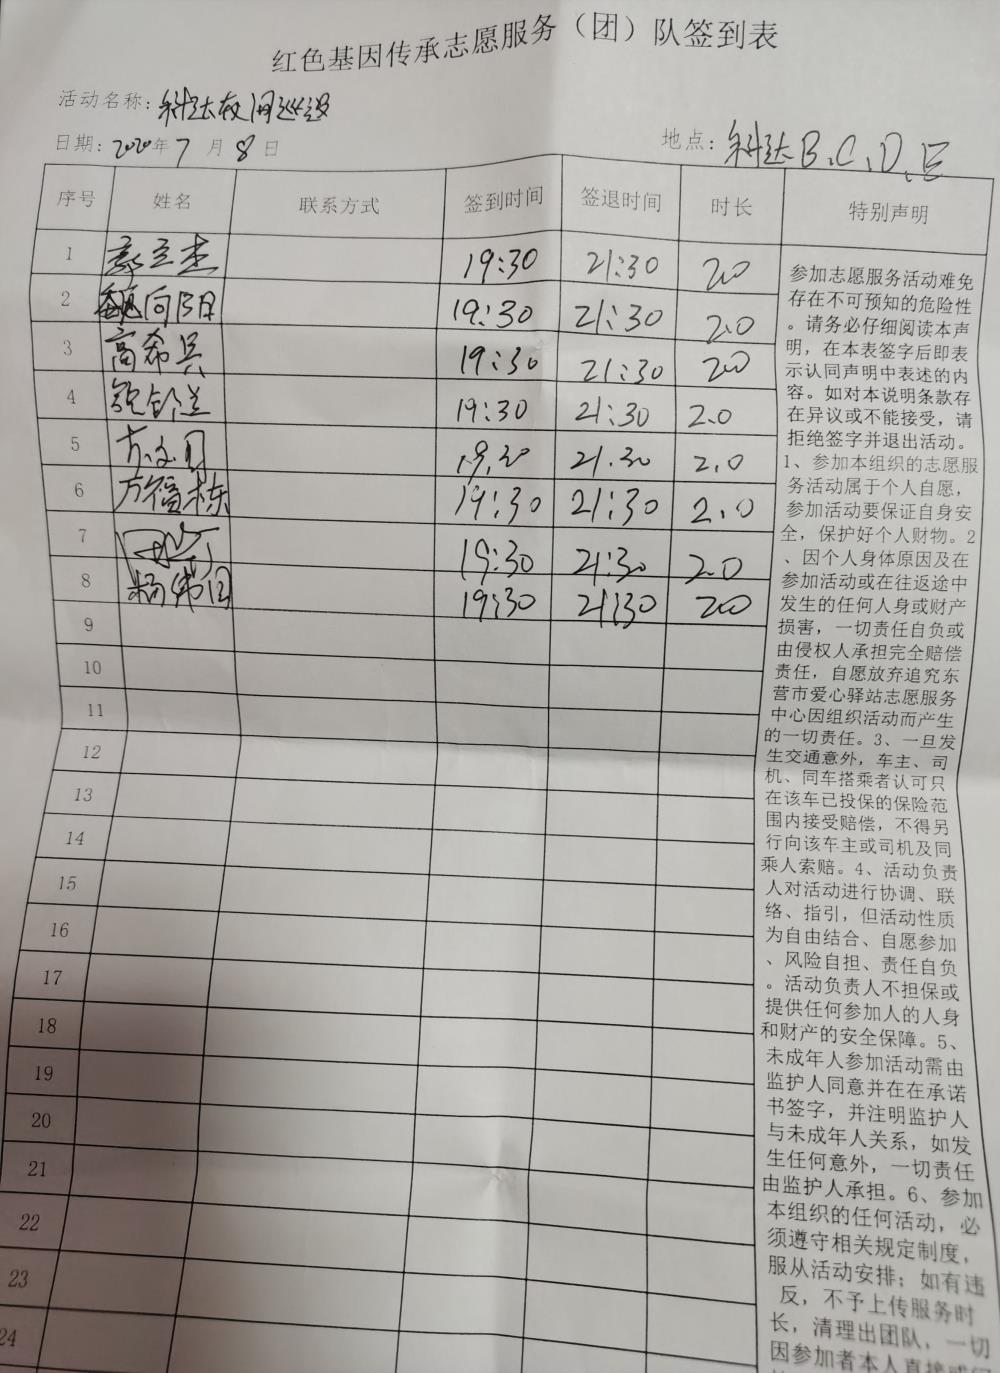 红色基因传承志愿服务（团）队签到表
活动名称：科达夜间巡逻
日期：2020年7月8日
地点：科达B、C、D、E
序号 姓名 联系方式 签到时间 签退时间 时长 特别声明
1 19:30 21:30 2.0
2 魏向阳 19:30 21:30 2.0
3 高希兵 19:30 21:30 2.0
4 19:30 21:30 2.0
5 19:30 21:30 2.0
6 方福栋 19:30 21:30 2.0
7 19:30 21:30 2.0
8 杨伟国 19:30 21:30 2.0
9
10
11
12
13
14
15
16
17
18
19
20
21
22
23
24
参加志愿服务活动难免
存在不可预知的危险性
。请务必仔细阅读本声
明，在本表签字后即表
示认同声明中表述的内
容。如对本说明条款存
在异议或不能接受，请
拒绝签字并退出活动。
1、参加本组织的志愿服
务活动属于个人自愿，
参加活动要保证自身安
全，保护好个人财物。2
、因个人身体原因及在
参加活动或在往返途中
发生的任何人身或财产
损害，一切责任自负或
由侵权人承担完全赔偿
责任，自愿放弃追究东
营市爱心驿站志愿服务
中心因组织活动而产生
的一切责任。3、一旦发
生交通意外，车主、司
机、同车搭乘者认可只
在该车已投保的保险范
围内接受赔偿，不得另
行向该车主或司机及同
乘人索赔。4、活动负责
人对活动进行协调、联
络、指引，但活动性质
为自由结合、自愿参加
、风险自担、责任自负
。活动负责人不担保或
提供任何参加人的人身
和财产的安全保障。5、
未成年人参加活动需由
监护人同意并在在承诺
书签字，并注明监护人
与未成年人关系，如发
生任何意外，一切责任
由监护人承担。6、参加
本组织的任何活动，必
须遵守相关规定制度，
服从活动安排；如有违
反，不予上传服务时
长，清理出团队，一切
因参加者本人直接或间